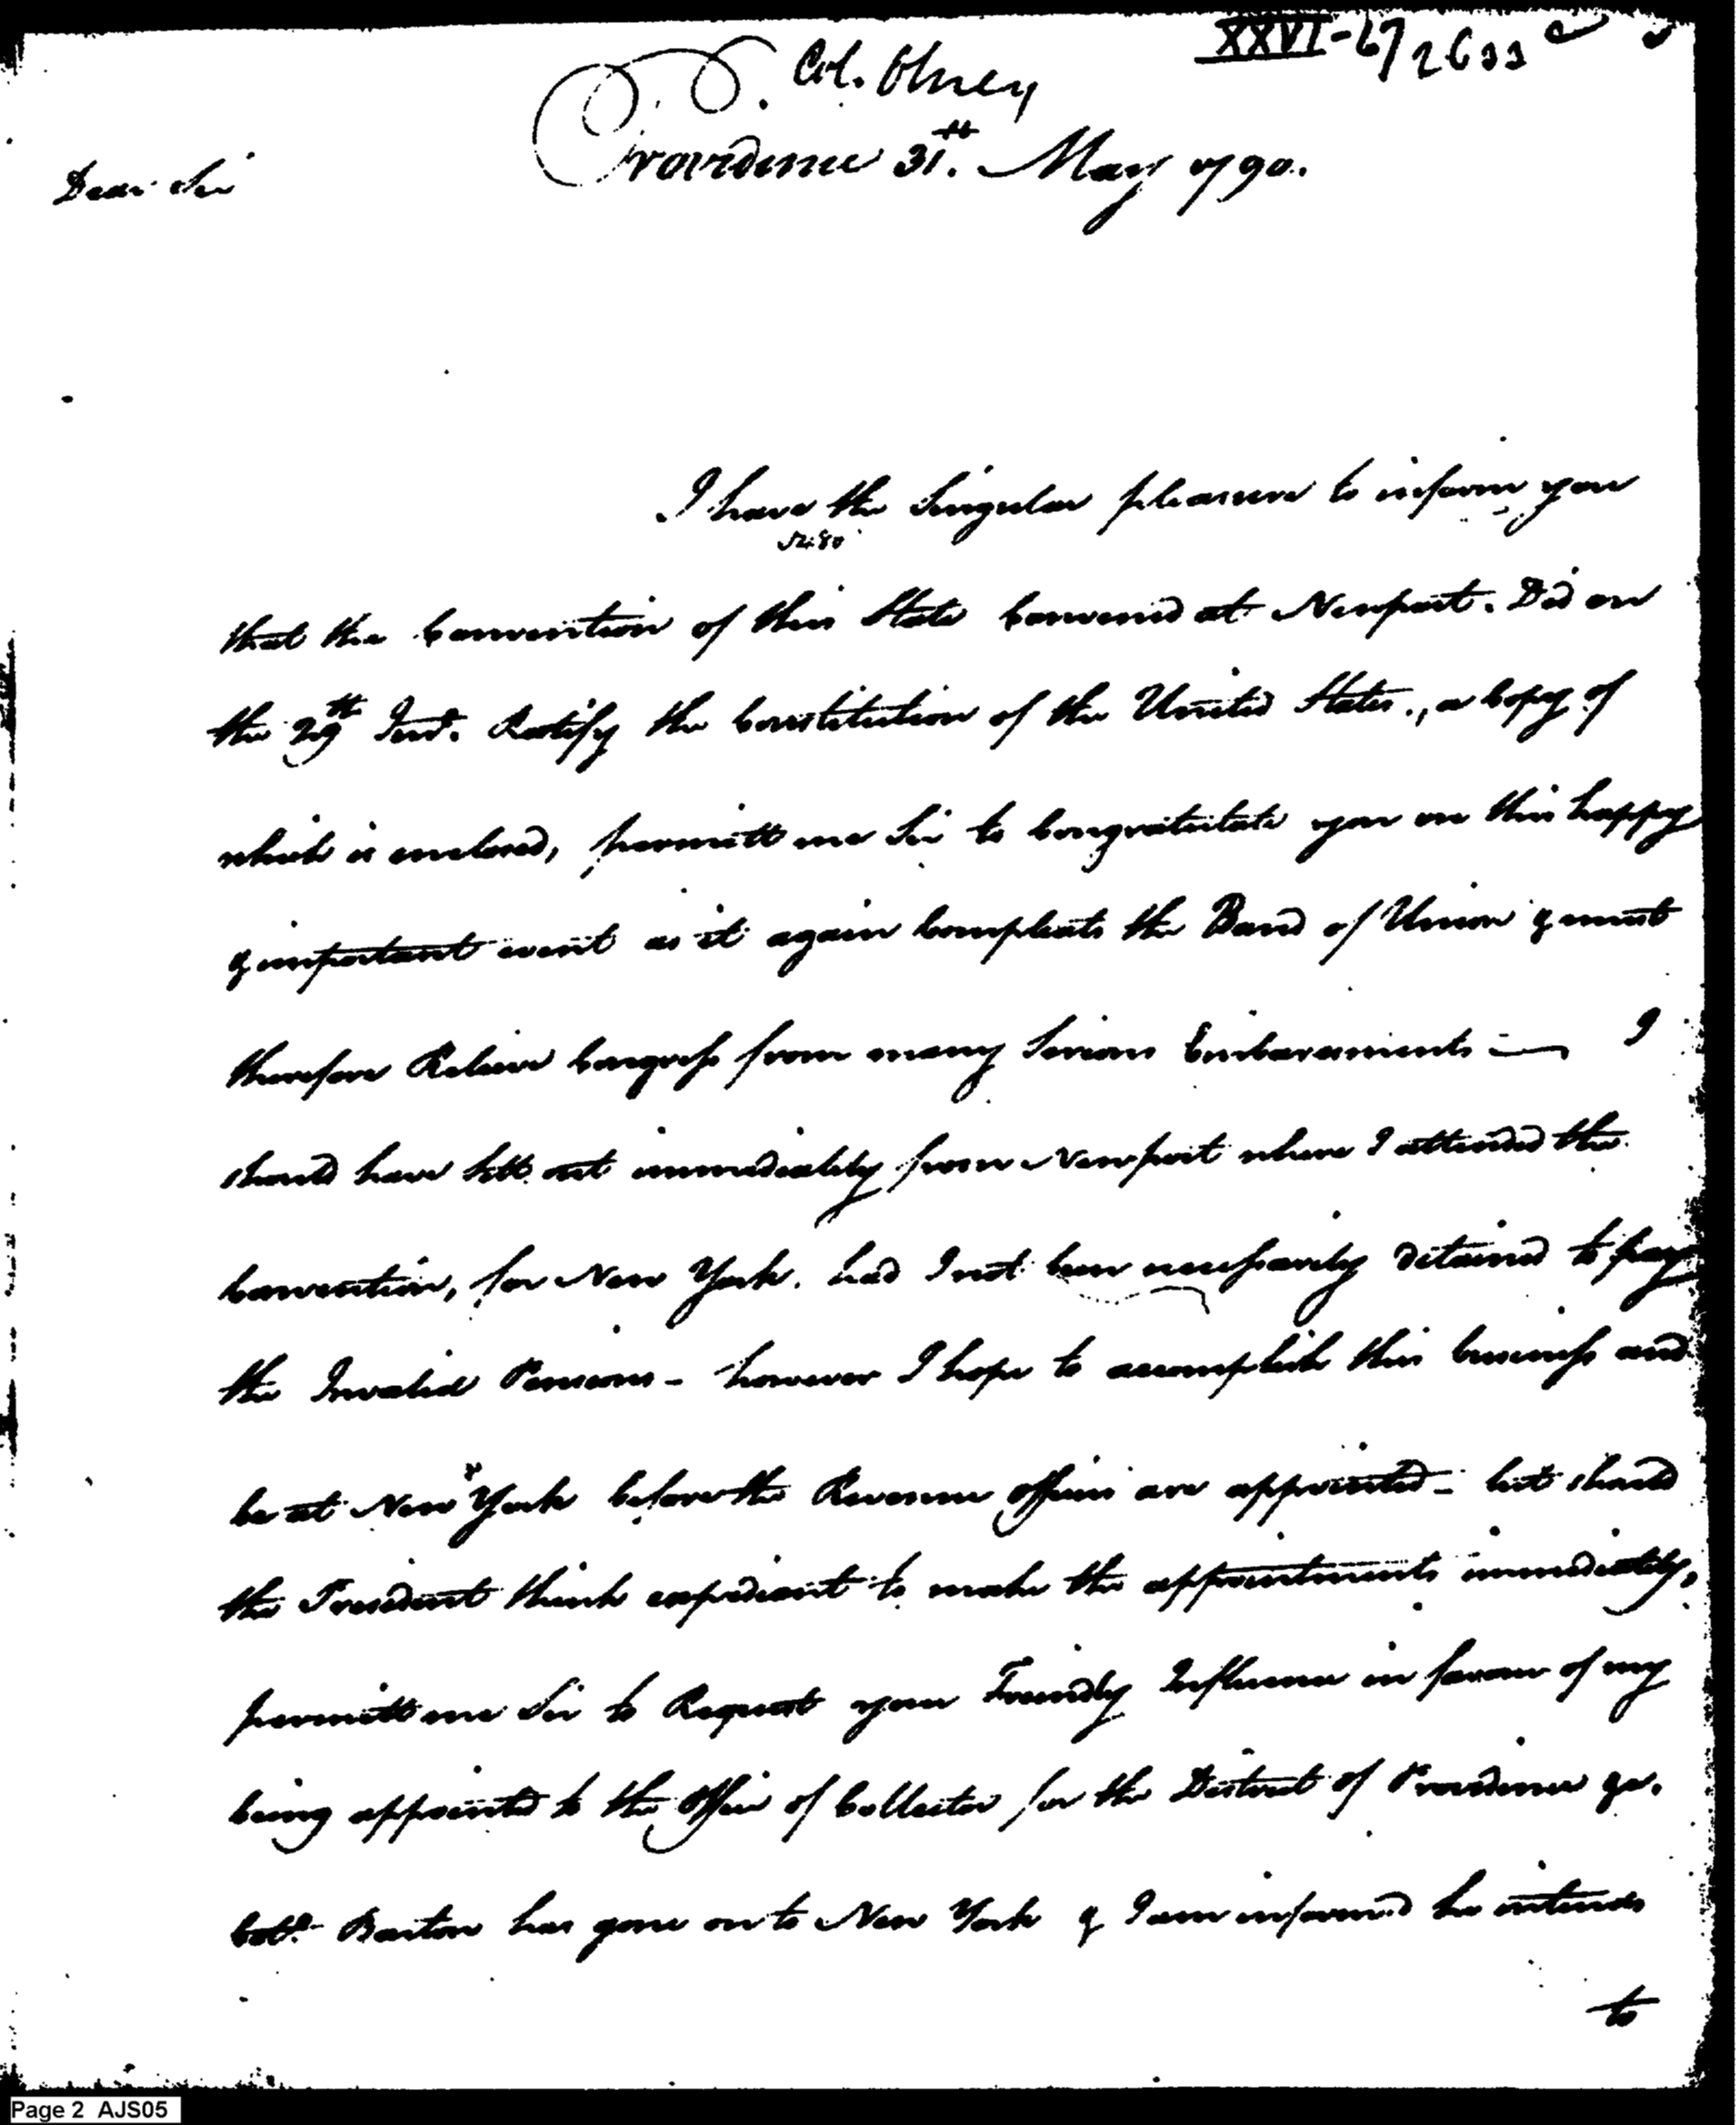 XXVI-67 2633
Col. Olney
Providence 31st. May 1790.
Dear Sir
I have the Singular pleasure to inform you
that the Convention of this State Convened at Newport. Did on
the 29th Inst. Ratify the Constitution of the United States., a Copy of
which is enclosed, permitt me Sir to Congratutate you on this happy
& important event as it again Compleats the Band of Union & must
therefore Relieve Congress from many Serious Embarasments — I
should have sett out immediately from Newport where I attended the
Convention, for New York. had I not been necessarily detained to pay
the Invalid Pensions - however I hope to accomplish this business and
be at New York before the Revenue officers are appointed - but should
the President think expediant to make the appointments immediately,
permitt me Sir to Request your Friendly Influence in favour of my
being appointed to the Office of Collector for the District of Providence &c.
Colo. Barton has gone on to New York & I am informed he intends
to
Page 2 AJS05